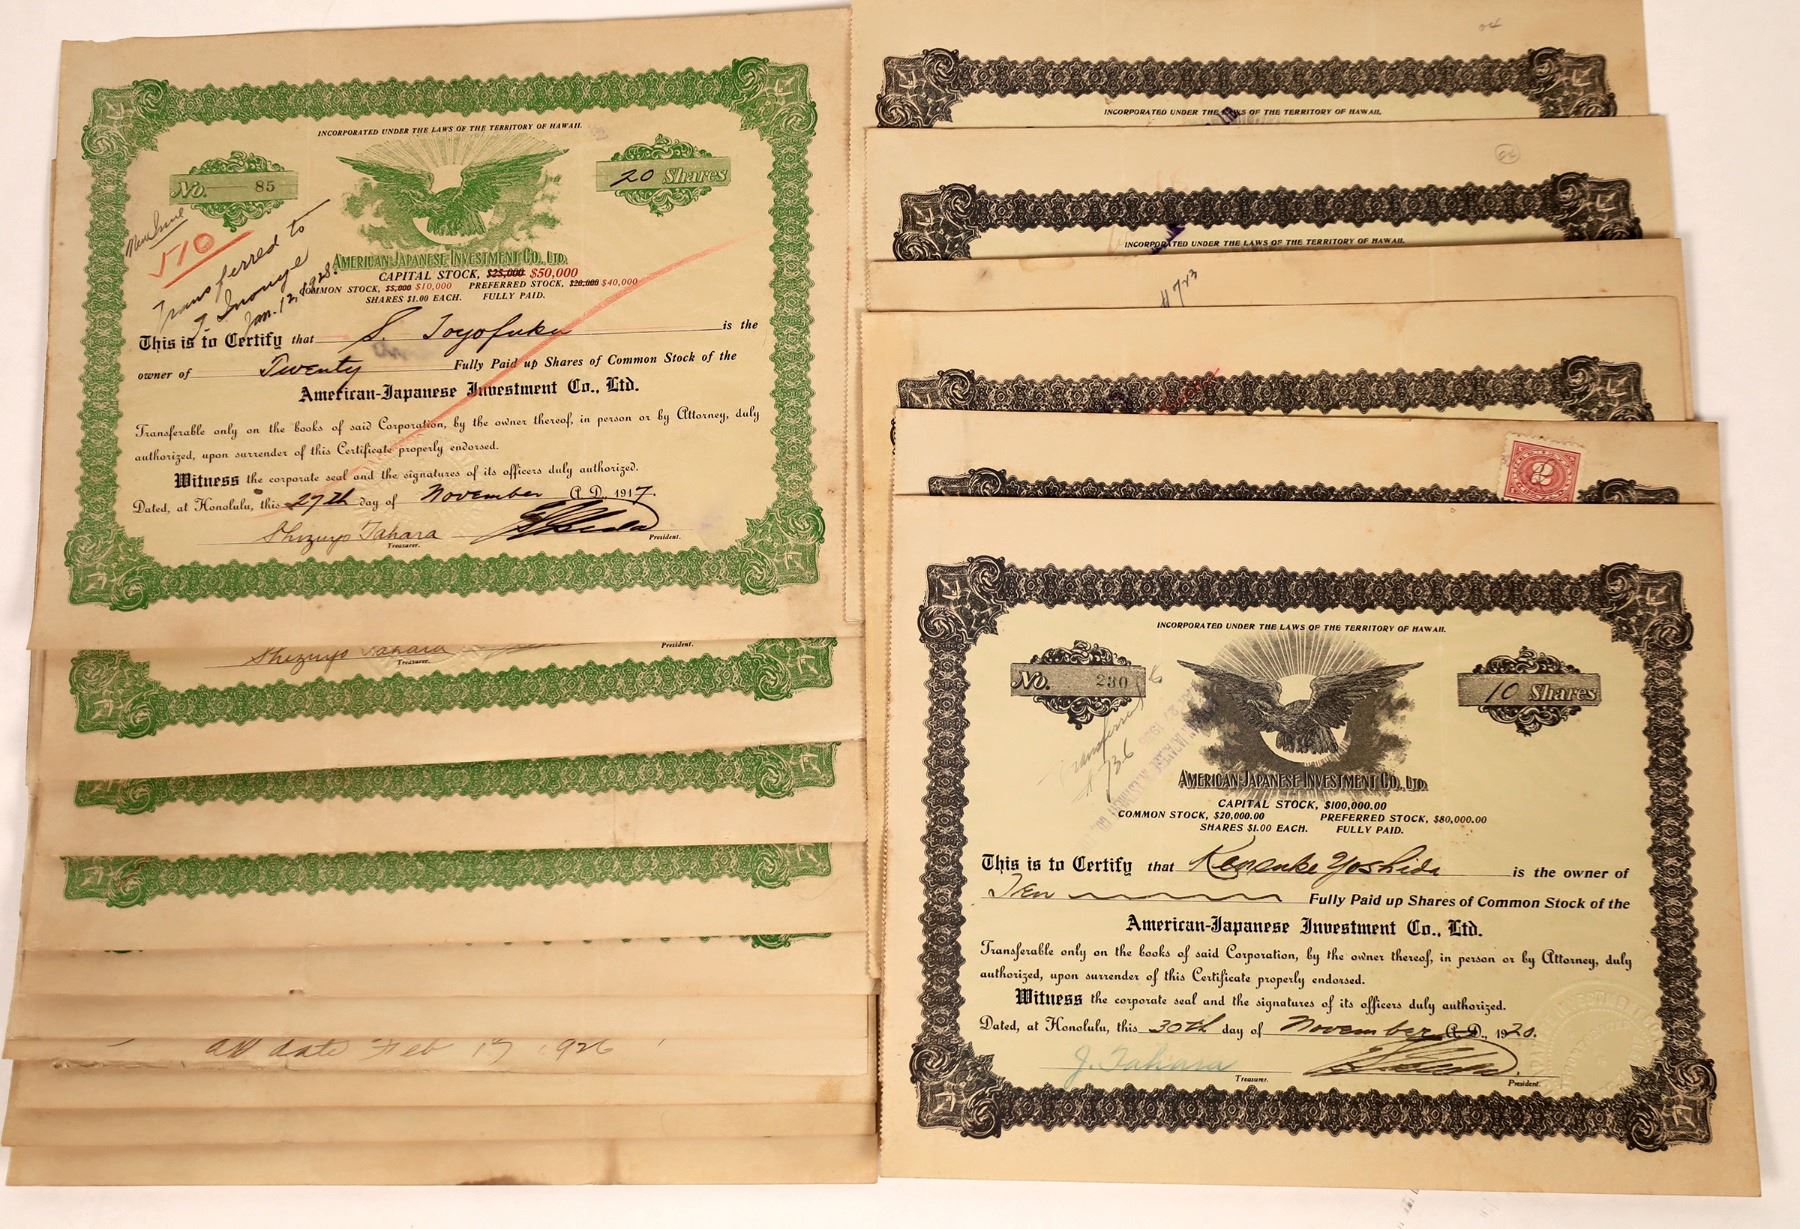 INCORPORATED UNDER THE LAWS OF THE TERRITORY OF HAWAII.
No. 85
20 Shares
New Issue
510
Transferred to
Inouye
Jan. 12, 1928.
AMERICAN-JAPANESE INVESTMENT CO., LTD.
CAPITAL STOCK, $25,000 $50,000
COMMON STOCK, $5,000 $10,000 PREFERRED STOCK, $20,000 $40,000
SHARES $1.00 EACH. FULLY PAID.
This is to Certify that S. Toyofuku is the
owner of Twenty Fully Paid up Shares of Common Stock of the
American-Japanese Investment Co., Ltd.
Transferable only on the books of said Corporation, by the owner thereof, in person or by Attorney, duly
authorized, upon surrender of this Certificate properly endorsed.
Witness the corporate seal and the signatures of its officers duly authorized.
Dated, at Honolulu, this 27th day of November A. D., 1917.
Shizuyo Tahara
Treasurer.
President.
Shizuyo Tahara
Treasurer.
President.
date Feb 17 1926
04
INCORPORATED UNDER THE LAWS OF THE TERRITORY OF HAWAII.
INCORPORATED UNDER THE LAWS OF THE TERRITORY OF HAWAII.
# 723
2
INCORPORATED UNDER THE LAWS OF THE TERRITORY OF HAWAII.
No. 230
10 Shares
Transferred
# 736
AMERICAN-JAPANESE INVESTMENT CO., LTD.
CAPITAL STOCK, $100,000.00
COMMON STOCK, $20,000.00 PREFERRED STOCK, $80,000.00
SHARES $1.00 EACH. FULLY PAID.
This is to Certify that Kensuke Yoshida is the owner of
Ten Fully Paid up Shares of Common Stock of the
American-Japanese Investment Co., Ltd.
Transferable only on the books of said Corporation, by the owner thereof, in person or by Attorney, duly
authorized, upon surrender of this Certificate properly endorsed.
Witness the corporate seal and the signatures of its officers duly authorized.
Dated, at Honolulu, this 30th day of November A. D., 1920.
J. Tahara
Treasurer.
President.